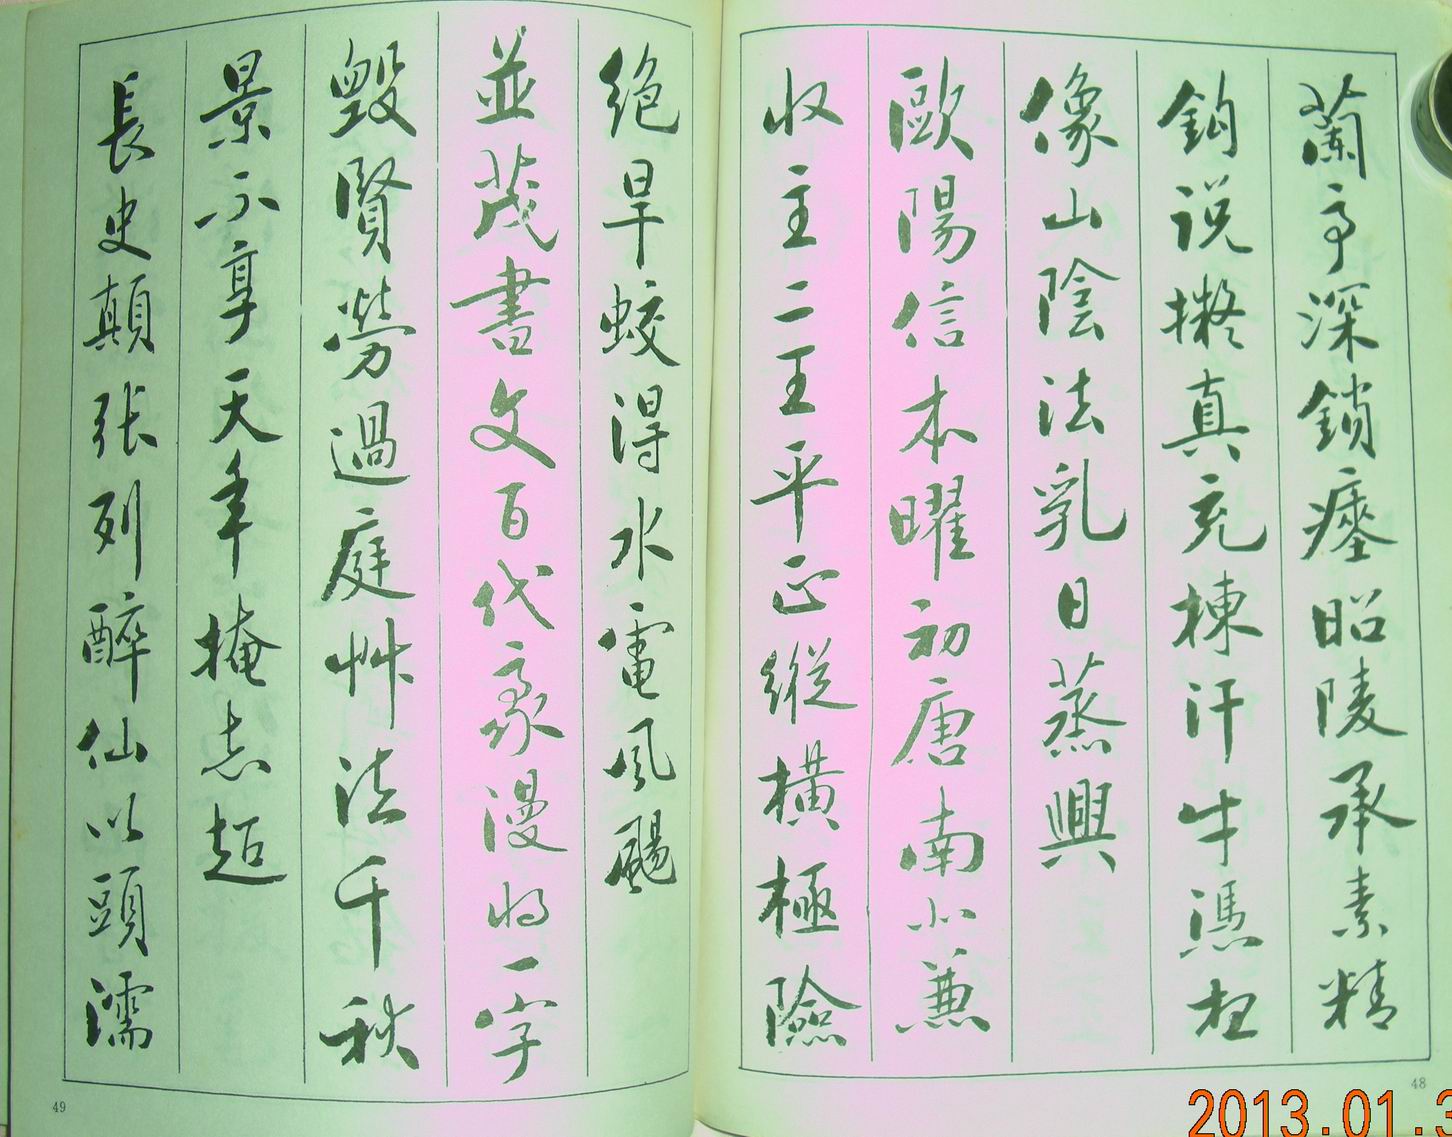 蘭亭深鎖瘞昭陵承素精
鈎说擬真充棟汗牛馮枉
像山陰法乳日蒸興
歐陽信本曜初唐南北兼
收主二王平正縱橫極險
绝旱蛟得水電風颺
並茂書文百代豪漫将一字
毀賢勞過庭艸法千秋
景不享天年掩志超
長史顛張列醉仙以頭濡
48
49
2013.01.3